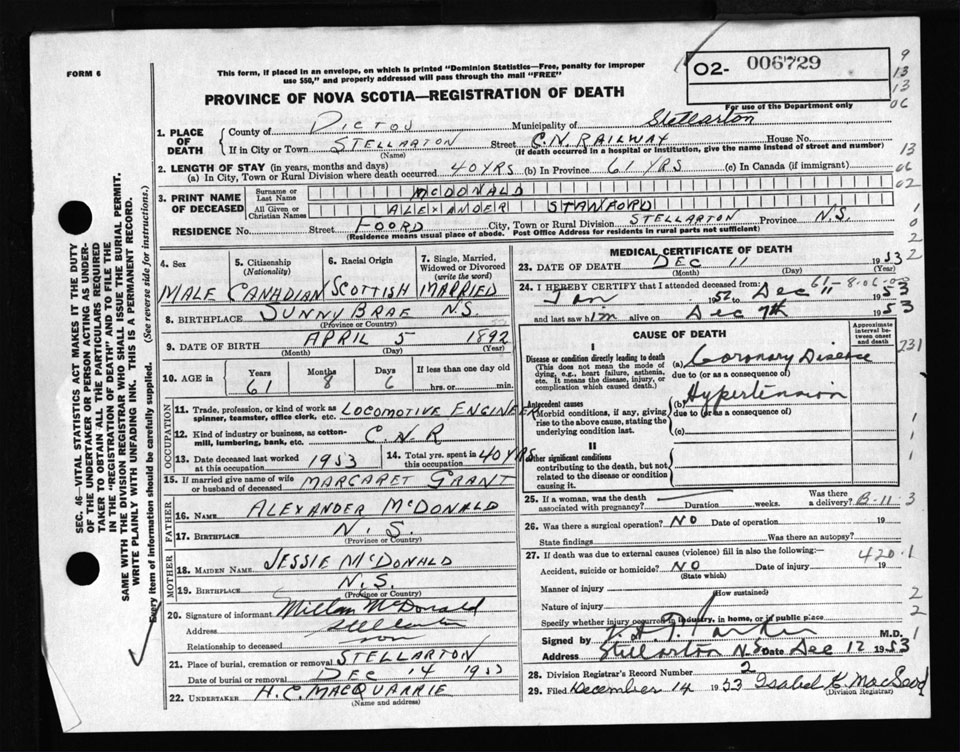 FORM 6
This form, if placed in an envelope, on which is printed "Dominion Statistics—Free, penalty for improper
use $50," and properly addressed will pass through the mail "FREE"
O2- 006729
For use of the Department only
PROVINCE OF NOVA SCOTIA—REGISTRATION OF DEATH
9
13
13
06
13
06
02
1
0
2
2
1. PLACE OF DEATH
County of PICTOU Municipality of Stellarton
If in City or Town STELLARTON Street C.N. RAILWAY House No.
(Name) (If death occurred in a hospital or institution, give the name instead of street and number)
2. LENGTH OF STAY (in years, months and days)
(a) In City, Town or Rural Division where death occurred 40 YRS (b) In Province 61 YRS (c) In Canada (if immigrant)
3. PRINT NAME OF DECEASED
Surname or Last Name MCDONALD
All Given or Christian Names ALEXANDER STANFORD
RESIDENCE No. Street FOORD City, Town or Rural Division STELLARTON Province N.S.
(Residence means usual place of abode. Post Office Address for residents in rural parts not sufficient)
4. Sex
5. Citizenship
(Nationality)
6. Racial Origin
7. Single, Married, Widowed or Divorced
(write the word)
MALE CANADIAN SCOTTISH MARRIED
8. BIRTHPLACE SUNNY BRAE N.S.
(Province or Country)
9. DATE OF BIRTH APRIL 5 1892
(Month) (Day) (Year)
10. AGE in Years Months Days If less than one day old
61 8 6 hrs. or min.
OCCUPATION
11. Trade, profession, or kind of work as spinner, teamster, office clerk, etc. LOCOMOTIVE ENGINEER
12. Kind of industry or business, as cotton-mill, lumbering, bank, etc. C.N.R
13. Date deceased last worked at this occupation 1953 14. Total yrs. spent in this occupation 40 YRS
15. If married give name of wife or husband of deceased MARGARET GRANT
FATHER
16. Name ALEXANDER McDONALD
17. Birthplace N.S.
(Province or Country)
MOTHER
18. MAIDEN NAME JESSIE McDONALD
19. BIRTHPLACE N.S.
(Province or Country)
20. Signature of informant McDonald
Address Stellarton
Relationship to deceased son
21. Place of burial, cremation or removal STELLARTON
Date of burial or removal DEC 14 1953
22. UNDERTAKER H.C. MACQUARRIE
(Name and address)
MEDICAL CERTIFICATE OF DEATH
23. DATE OF DEATH DEC 11 1953
(Month) (Day) (Year)
24. I HEREBY CERTIFY that I attended deceased from:
Jan 1952 to Dec 11 1953
and last saw him alive on Dec 7th 1953
CAUSE OF DEATH
Approximate interval between onset and death
I
Disease or condition directly leading to death
(This does not mean the mode of dying, e.g., heart failure, asthenia, etc. It means the disease, injury, or complication which caused death.)
(a) Coronary Disease
due to (or as a consequence of)
Antecedent causes
Morbid conditions, if any, giving rise to the above cause, stating the underlying condition last.
(b) Hypertension
due to (or as a consequence of)
(c)
II
Other significant conditions
contributing to the death, but not related to the disease or condition causing it.
231
1
1
1
25. If a woman, was the death associated with pregnancy? Duration weeks. Was there a delivery?
B-11-3
26. Was there a surgical operation? NO Date of operation 19
State findings Was there an autopsy?
27. If death was due to external causes (violence) fill in also the following:—
420.1
Accident, suicide or homicide? NO Date of injury 19
(State which)
Manner of injury
(How sustained)
Nature of injury
Specify whether injury occurred in industry, in home, or in public place
2
2
1
Signed by Parker M.D.
Address Stellarton N.S. Date Dec 12 1953
28. Division Registrar's Record Number 2
29. Filed December 14 1953 Isabel MacLeod
(Division Registrar)
SEC. 46—VITAL STATISTICS ACT MAKES IT THE DUTY
OF THE UNDERTAKER OR PERSON ACTING AS UNDER-
TAKER TO OBTAIN ALL THE PARTICULARS REQUIRED
IN THE "REGISTRATION OF DEATH" AND TO FILE THE
SAME WITH THE DIVISION REGISTRAR WHO SHALL ISSUE THE BURIAL PERMIT.
WRITE PLAINLY WITH UNFADING INK. THIS IS A PERMANENT RECORD.
Every item of information should be carefully supplied. (See reverse side for instructions.)